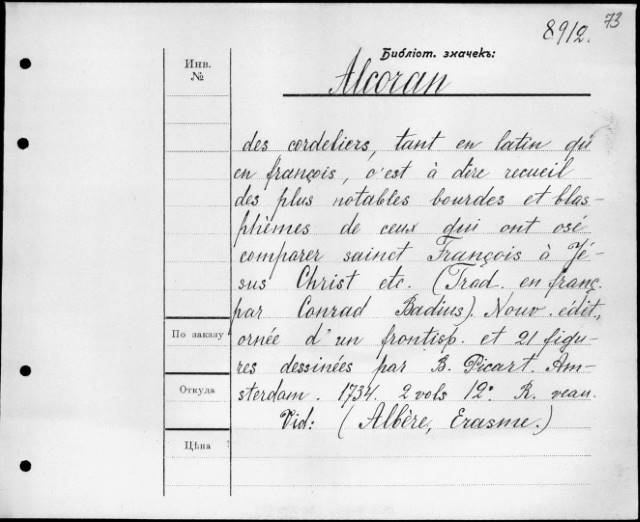 73
8912.
Библіот. значекъ:
Инв.
№
Alcoran
des cordeliers, tant en latin qu'
en françois, c'est à dire recueil
des plus notables bourdes et blas-
phèmes de ceux qui ont osé
comparer sainct François à Jé-
sus Christ etc. (Trad. en franç.
par Conrad Badius). Nouv. édit.,
По заказу
ornée d'un frontisp. et 21 figu-
res dessinées par B. Picart. Am-
Откуда
sterdam. 1734. 2 vols 12º. R. veau.
Vid: (Albère, Erasme.)
Цѣна